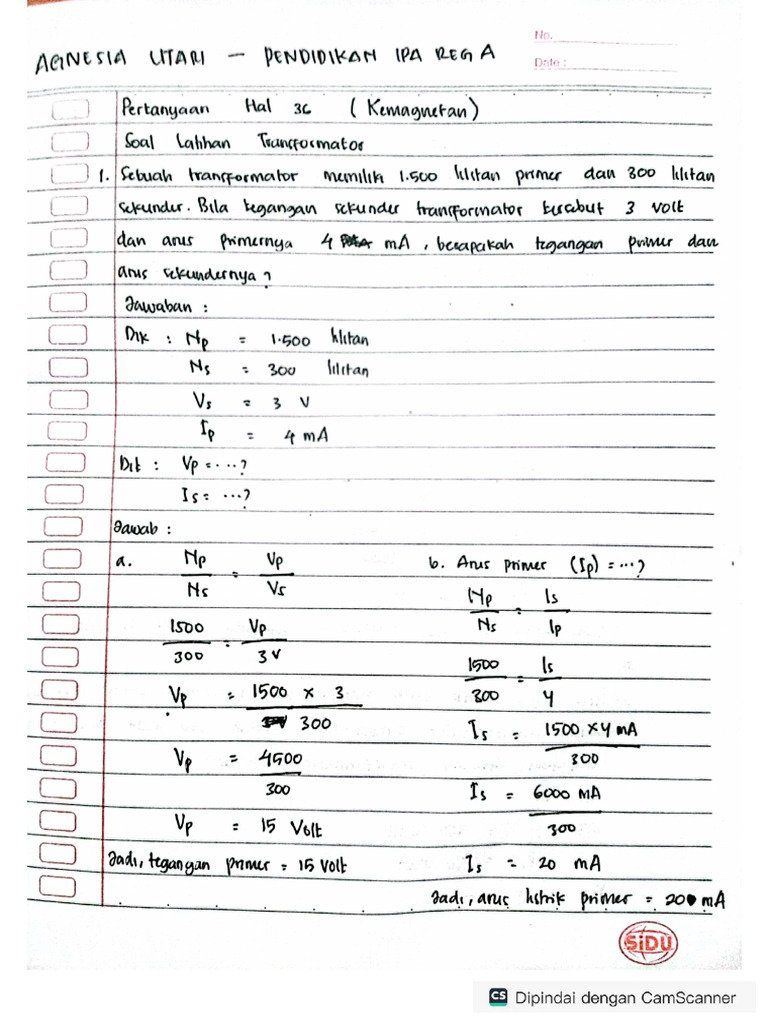 No.
AGNESIA UTARI — PENDIDIKAN IPA REG A
Date :
Pertanyaan Hal 36 ( Kemagnetan)
Soal Latihan Transformator
1. Sebuah transformator memiliki 1.500 lilitan primer dan 300 lilitan
sekunder. Bila tegangan sekunder transformator tersebut 3 volt
dan arus primernya 4 mA, berapakah tegangan primer dan
arus sekundernya?
Jawaban :
Dik : Np = 1.500 lilitan
Ns = 300 lilitan
Vs = 3 V
Ip = 4 mA
Dit : Vp = ...?
Is = ...?
Jawab :
a. Np/Ns = Vp/Vs
1500/300 = Vp/3V
Vp = 1500 x 3/300
Vp = 4500/300
Vp = 15 Volt
Jadi, tegangan primer = 15 Volt
b. Arus primer (Ip) = ...?
Np/Ns = Is/Ip
1500/300 = Is/4
Is = 1500 x 4 mA/300
Is = 6000 mA/300
Is = 20 mA
Jadi, arus listrik primer = 20 mA
SiDU
CS Dipindai dengan CamScanner